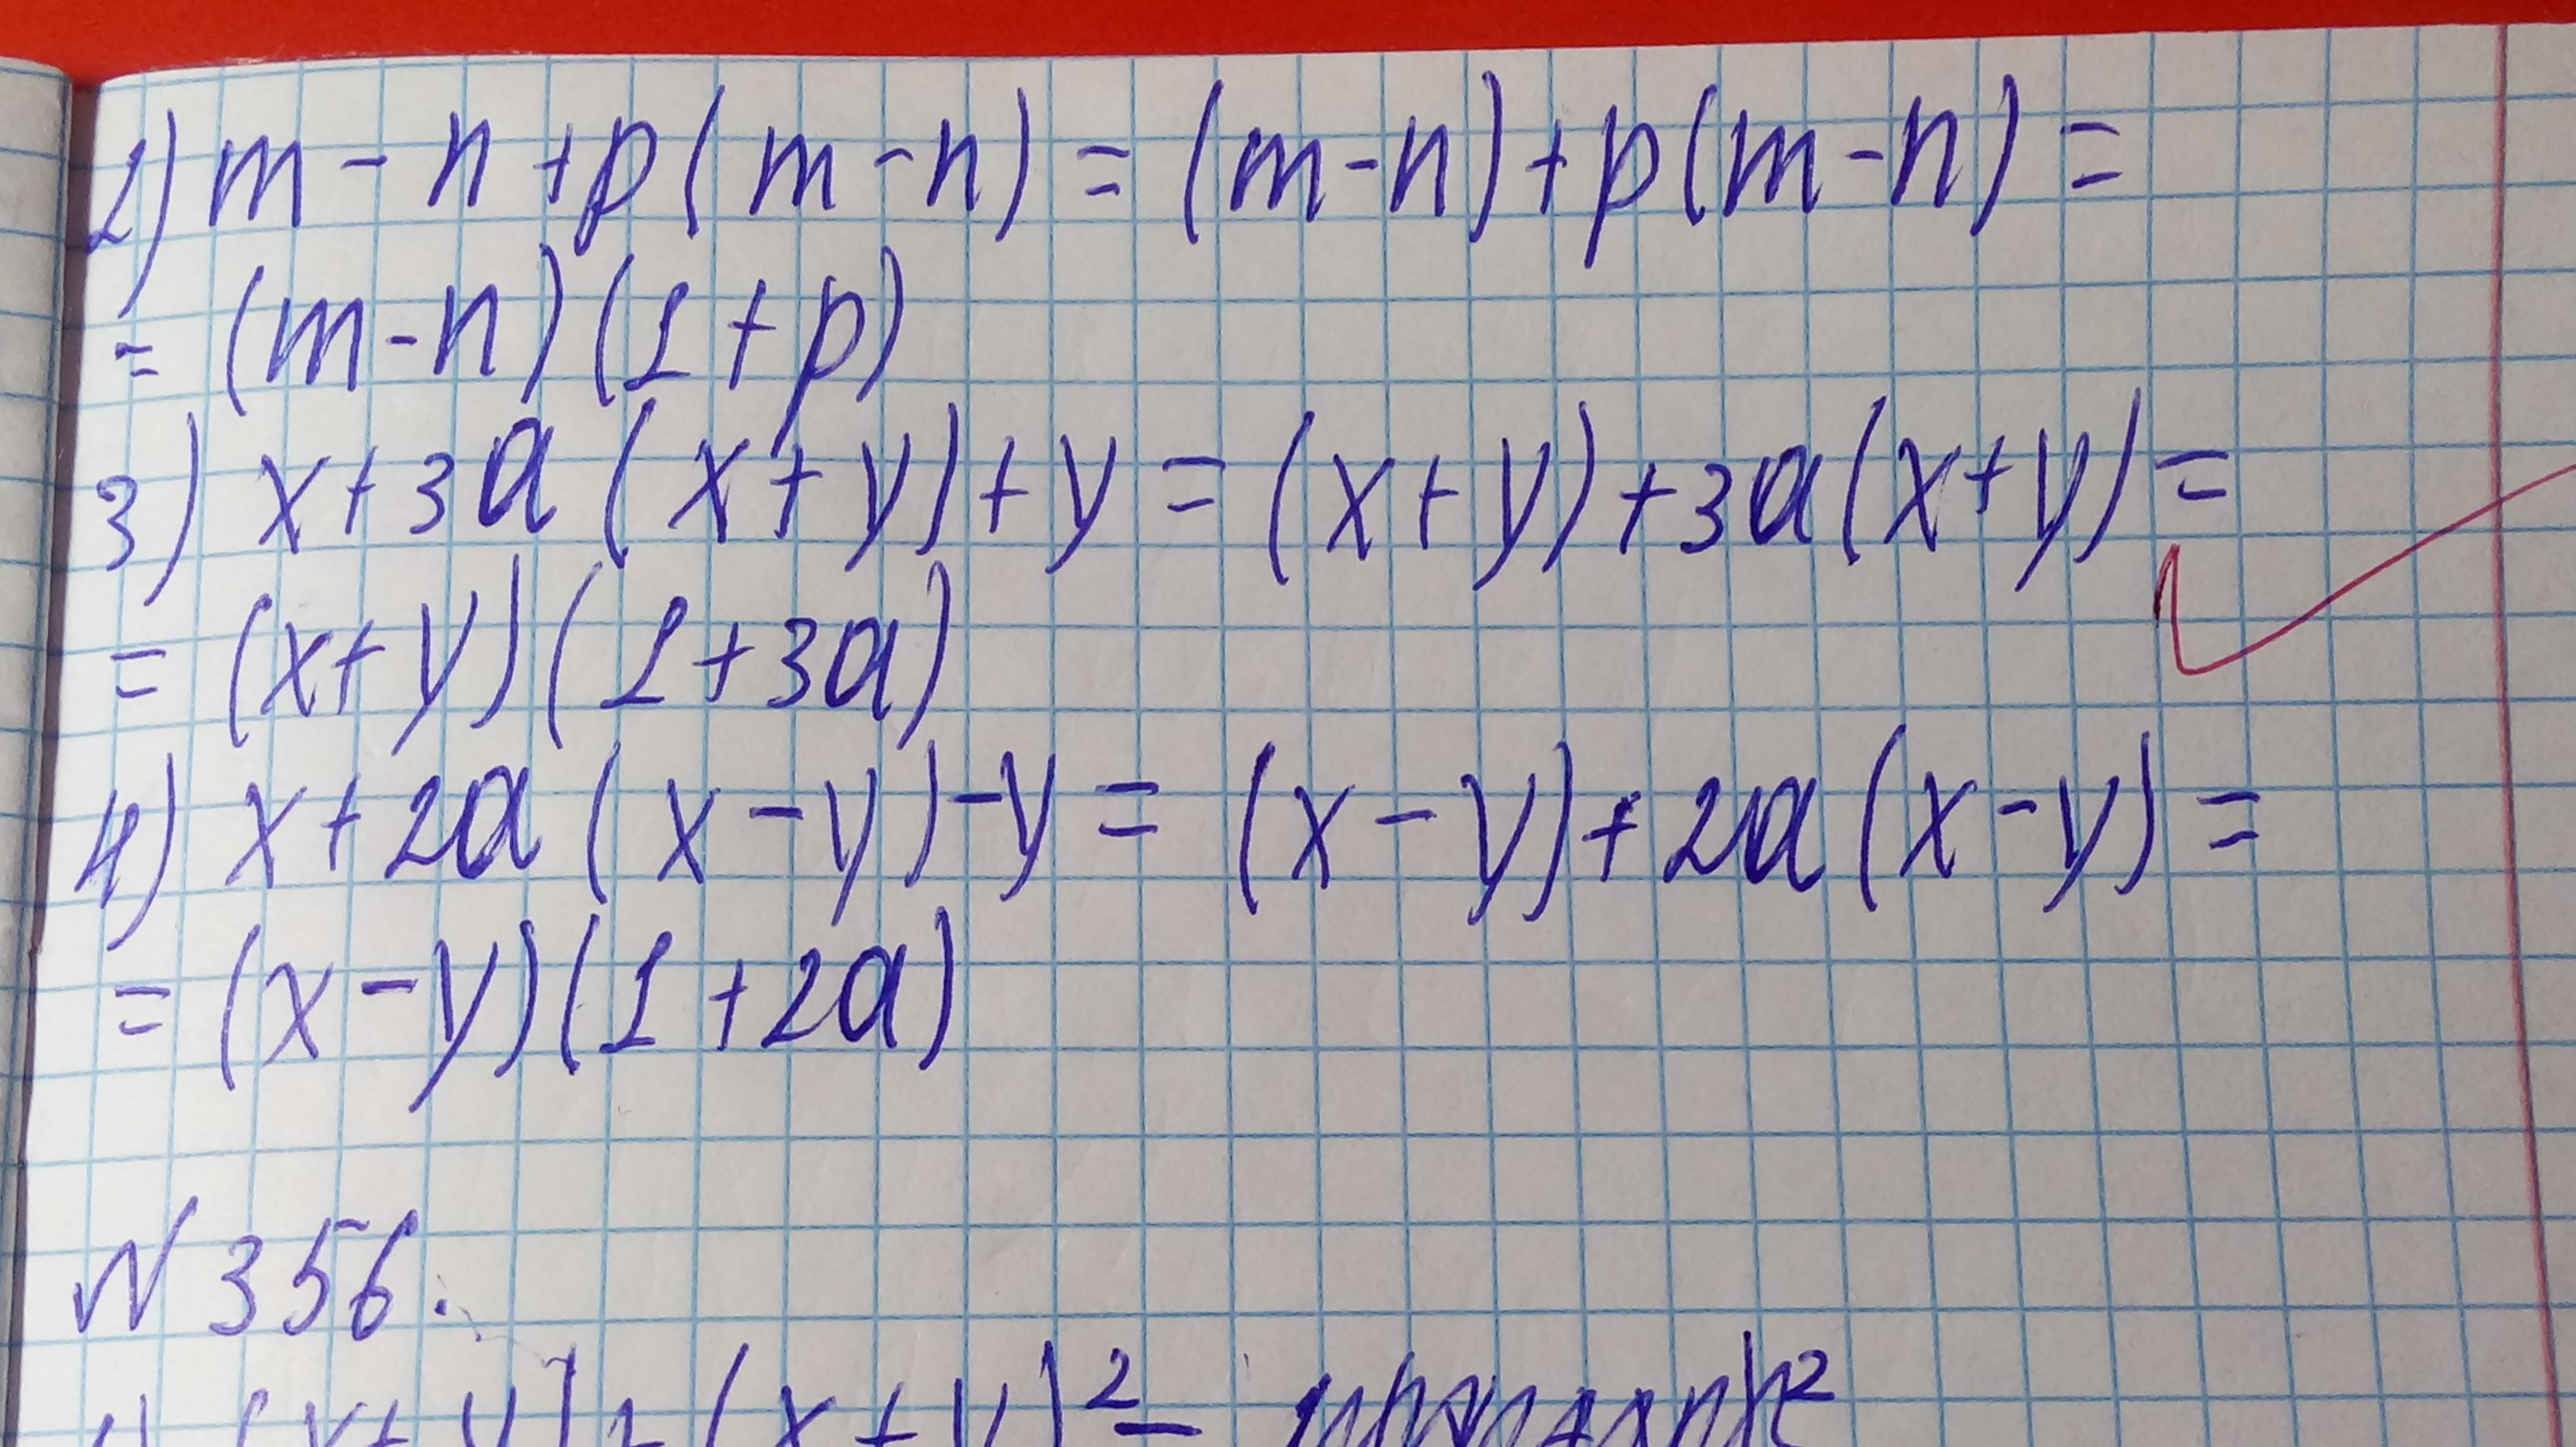 2) m - n + p(m - n) = (m - n) + p(m - n) =
= (m - n)(1 + p)
3) x + 3a(x + y) + y = (x + y) + 3a(x + y) =
= (x + y)(1 + 3a)
4) x + 2a(x - y) - y = (x - y) + 2a(x - y) =
= (x - y)(1 + 2a)
N 356.
1) (x + y) + (x + y)² =